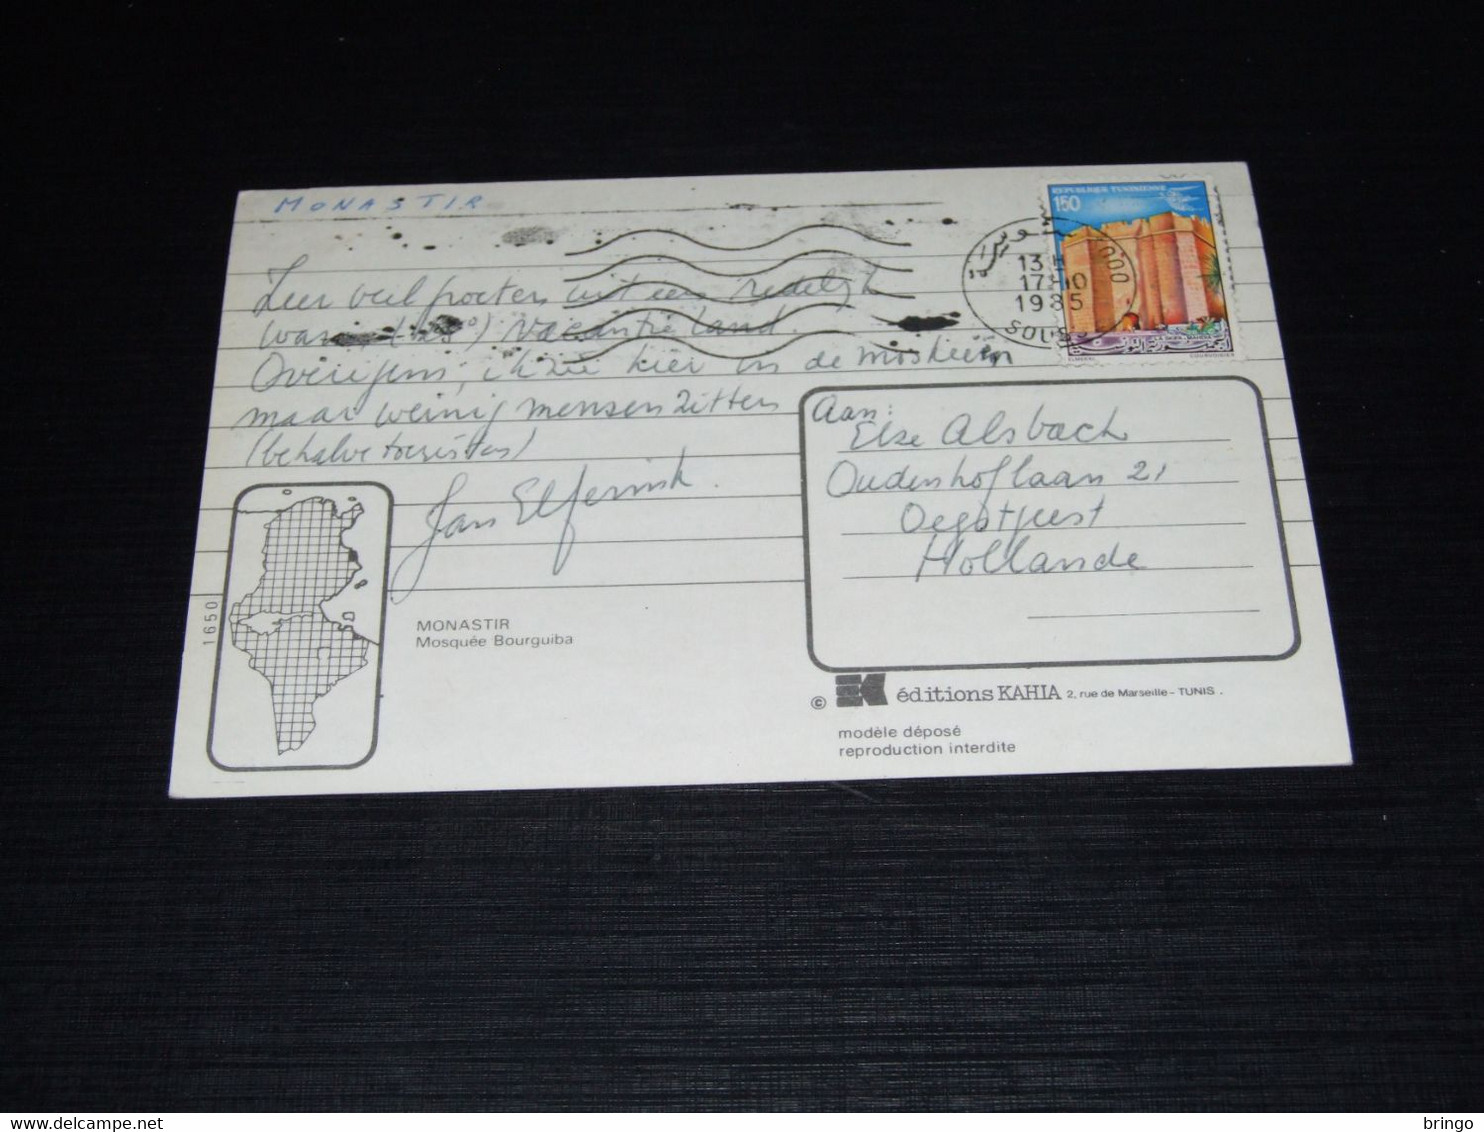 MONASTIR
REPUBLIQUE TUNISIENNE
150
13 H
17-10
1985
SOUS
Zeer veel poeten uit een redelijk
warm (25°) vacantieland.
Overigens, ik zie hier in de moskeeën
maar weinig mensen zitten
(behalve toeristen)
Jan Elferink.
Aan:
Else Alsbach
Oudenhoflaan 21
Oegstgeest
Hollande
1650
MONASTIR
Mosquée Bourguiba
© éditions KAHIA 2, rue de Marseille - TUNIS.
modèle déposé
reproduction interdite
bringo